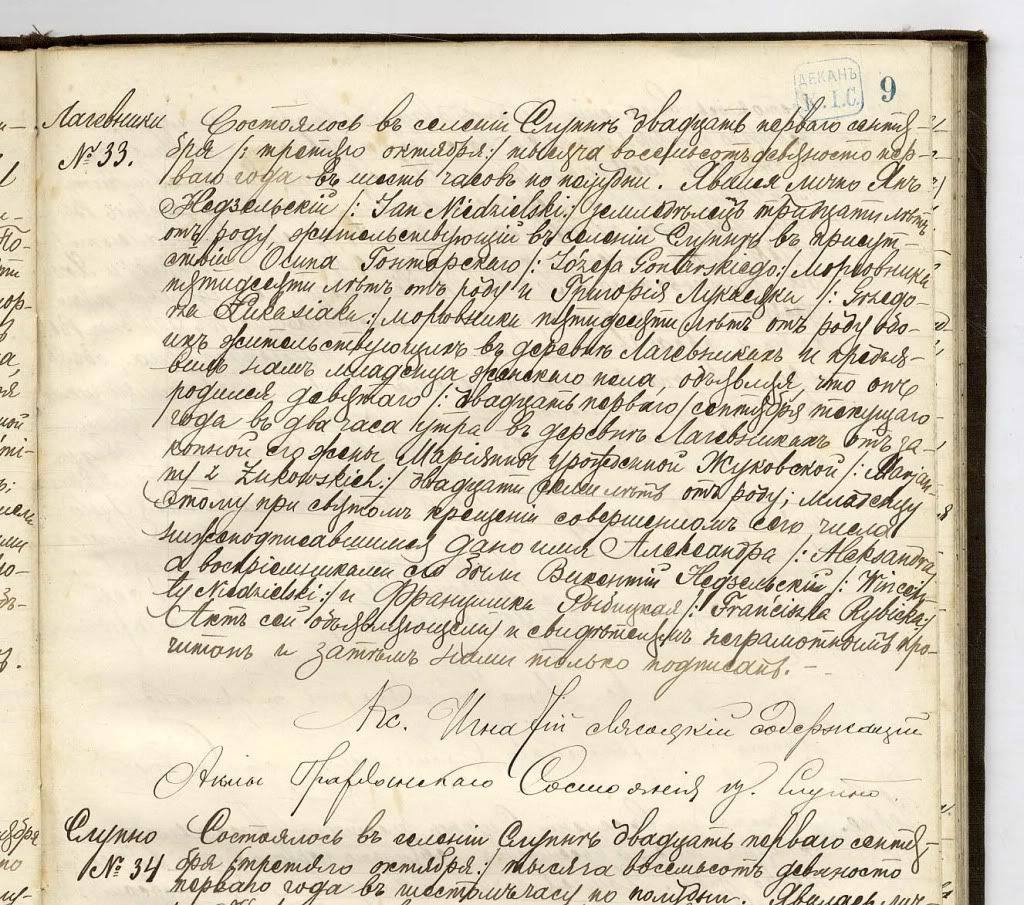 ДЕКАНЪ
I.C.
9
Лагевники
№ 33.
Состоялось въ селеніи Слупнѣ двадцать перваго сентя-
бря /: третяго октября :/ тысяча восемьсотъ девяносто пер-
ваго года въ шесть часовъ по полудни. Явился лично Янъ
Недзельскій /: Jan Niedzielski :/ земледѣлецъ тридцати лѣтъ
отъ роду, жительствующій въ селеніи Слупнѣ въ присут-
ствіи Осипа Гонтарскаго /: Józefa Gontarskiego :/ Морговника
пятидесяти лѣтъ отъ роду и Григорія Лукасяка /: Grzego-
rza Łukasiaka :/ морговника пятидесяти лѣтъ отъ роду обо-
ихъ жительствующихъ въ деревнѣ Лагевникахъ и предъя-
вилъ намъ младенца женскаго пола, объявляя, что онъ
родился девятаго /: двадцать перваго / сентября текущаго
года въ два часа утра въ деревнѣ Лагевникахъ отъ за-
конной его жены Маріянны урожденной Жуковской /: Marjan-
ny z Żukowskich :/ двадцати семи лѣтъ отъ роду; младенцу
этому при святомъ крещеніи совершенномъ сего числа
нижеподписавшимся дано имя Александра /: Aleksandra /
а воспріемниками его были Викентій Недзельскій /: Wincen-
ty Niedzielski :/ и Францишка Рыбицкая /: Franciszka Rybicka :/
Актъ сей объявляющему и свидѣтелямъ неграмотнымъ про-
читанъ и затѣмъ нами только подписанъ. -
Кс. Игнатій содержащій
Акты Гражданскаго Состоянія гм. Слупно.
Слупно
№ 34
Состоялось въ селеніи Слупнѣ двадцать перваго сентя-
бря /: третяго октября :/ тысяча восемьсотъ девяносто
перваго года въ шестомъ часу по полудни. Явилась лич-